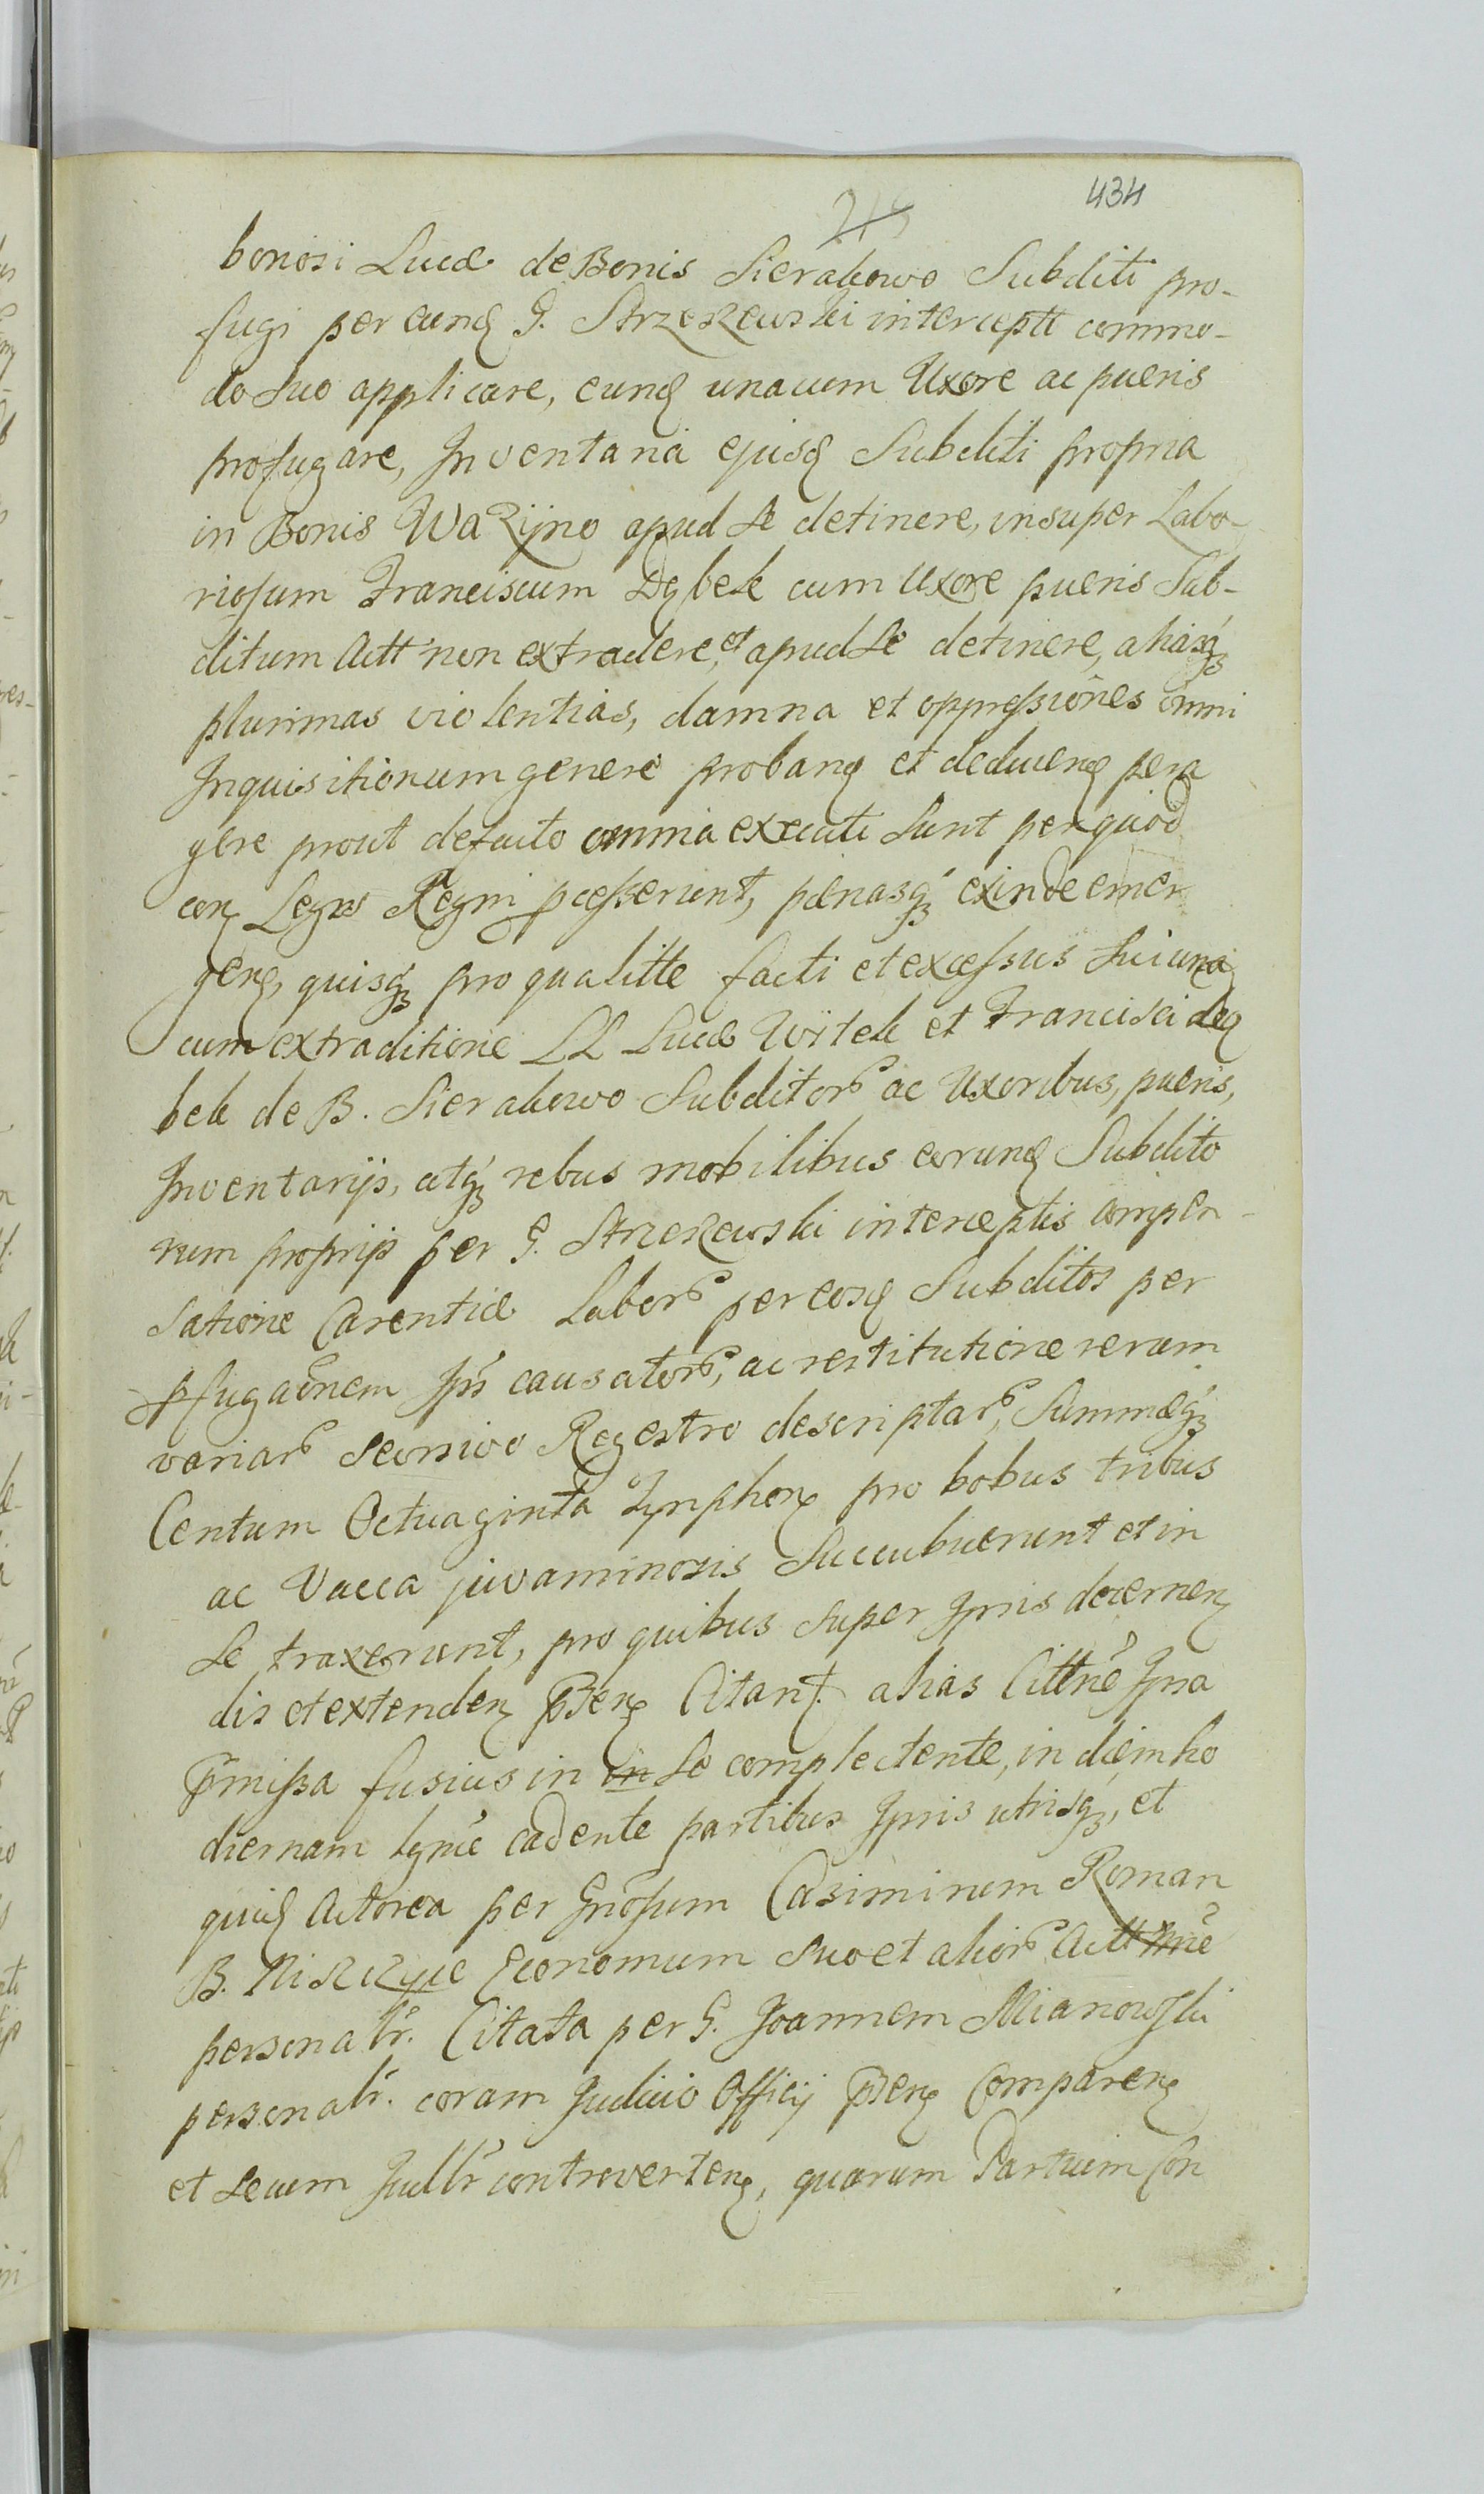 434
bonosi Lucæ de Bonis Sierakowo Subditi pro-
fugi per eund G. Strzeszewski intercepti commo-
do suo applicare, eund unacum Uxore ac pueris
profugare, Inventaria ejusd Subditi propria
in Bonis Wazÿno apud se detinere, insuper Labo-
riosum Franciscum Dębek cum uxore pueris Sub-
ditum Actt non extradere, et apud se detinere, aliasq
plurimas violentias, damna et oppressiones omni
Inquisitionum genere proband et deducend pera
gere prout de facto omnia executi sunt per quod
con Leges Regni pcesserunt, pœnasq exinde emer
gen, quisq pro qualitte facti et excessus sui una
cum extraditione LL Lucæ Wÿtek et Francisci dę
bek de B. Sierakowo Subditor ac Uxoribus, pueris,
Inventarijs, atq rebus mobilibus eorund Subdito
rum proprijs per G. Strzeszewski interceptis compen-
satione Carentiæ Labor per eosd Subditos per
pfugaonem Ipsi causator, ac restitutione rerum
variar seorsivo Regestro descriptar, Summæq
Centum Octuaginta Tynphon pro bobus tribus
ac Vacca juvaminosis succubuerunt et in
se traxerunt, pro quibus super Ipsis decernen
dis et extenden Pden Citant. alias Cittne Ipsa
pmissa fusius in in se complectente, in diem ho
diernam lgme cadente partibus Ipsis utrisq, et
quid Actorea per Gnosum Casimirum Roman
B. Niszczyce Economum suo et alior Actt nne
personalr. Citata per G. Joannem Mianowski
personalr. coram Judicio Officij Pden Comparen
et secum Judlr controverten, quarum Partium Con